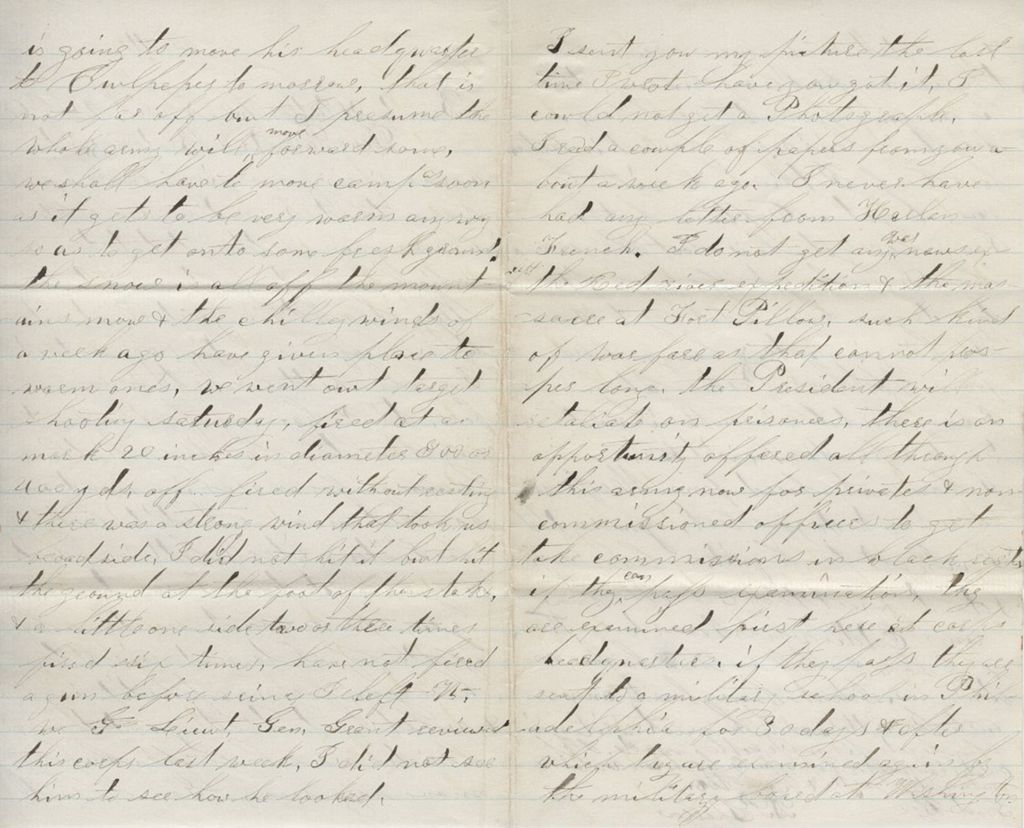 is going to move his headquarter
to Culpeper to morrow, that is
not far off but I presume the
whole army will move forward some,
we shall have to move camp as soon
as it gets to be very warm any way
so as to get onto some fresh ground.
the snow is all off the mount
ains now & the chilly winds of
a week ago have given place to
warm ones, we went out target
shooting saturday, fired at a
mark 20 inches in diameter 300 or
400 yds, off. fired without resting
& there was a strong wind that took us
broad side, I did not hit it but hit
the ground at the foot of the stake,
& a little one side two or three times
fired six times, have not fired
a gun before since I left
Lieut, Gen, Grant reviewed
this corps last week, I did not see
him to see how he looked.
I sent you my picture the last
time I wrote. have you got it, I
could not get a Photograph,
I read a couple of papers from you a
bout a week ago. I never have
had any letter from Harlan
French. I do not get any war news ex
cept the Red river expedition & the mas
sacre at Fort Pillow, such kind
of warfare as that cannot pros-
per long. the President will
retaliate on prisoners, there is an
opportunity offered all through
this army now for privates & non
commissioned officers to get
take commissions in black regts,
if they can pass examination, they
are examined first here at corps
headquarters. if they pass they are
sent to a military school in Phil
adelphia for 30 days & after
which they are examined again by
the military board at Washington